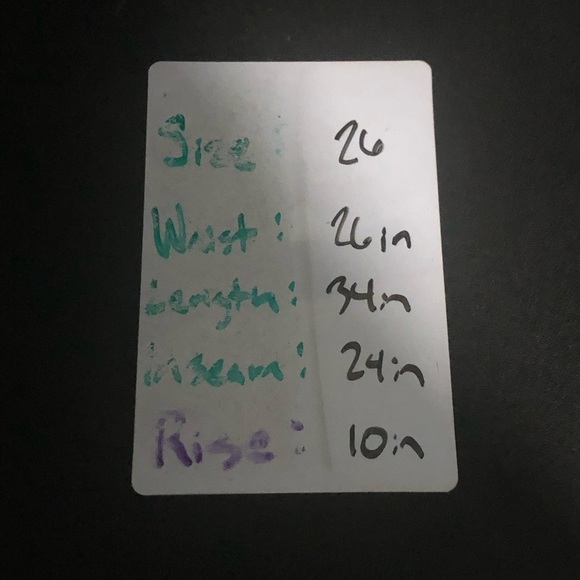 Size: 26
Waist: 26in
Length: 34in
inseam: 24in
Rise: 10in